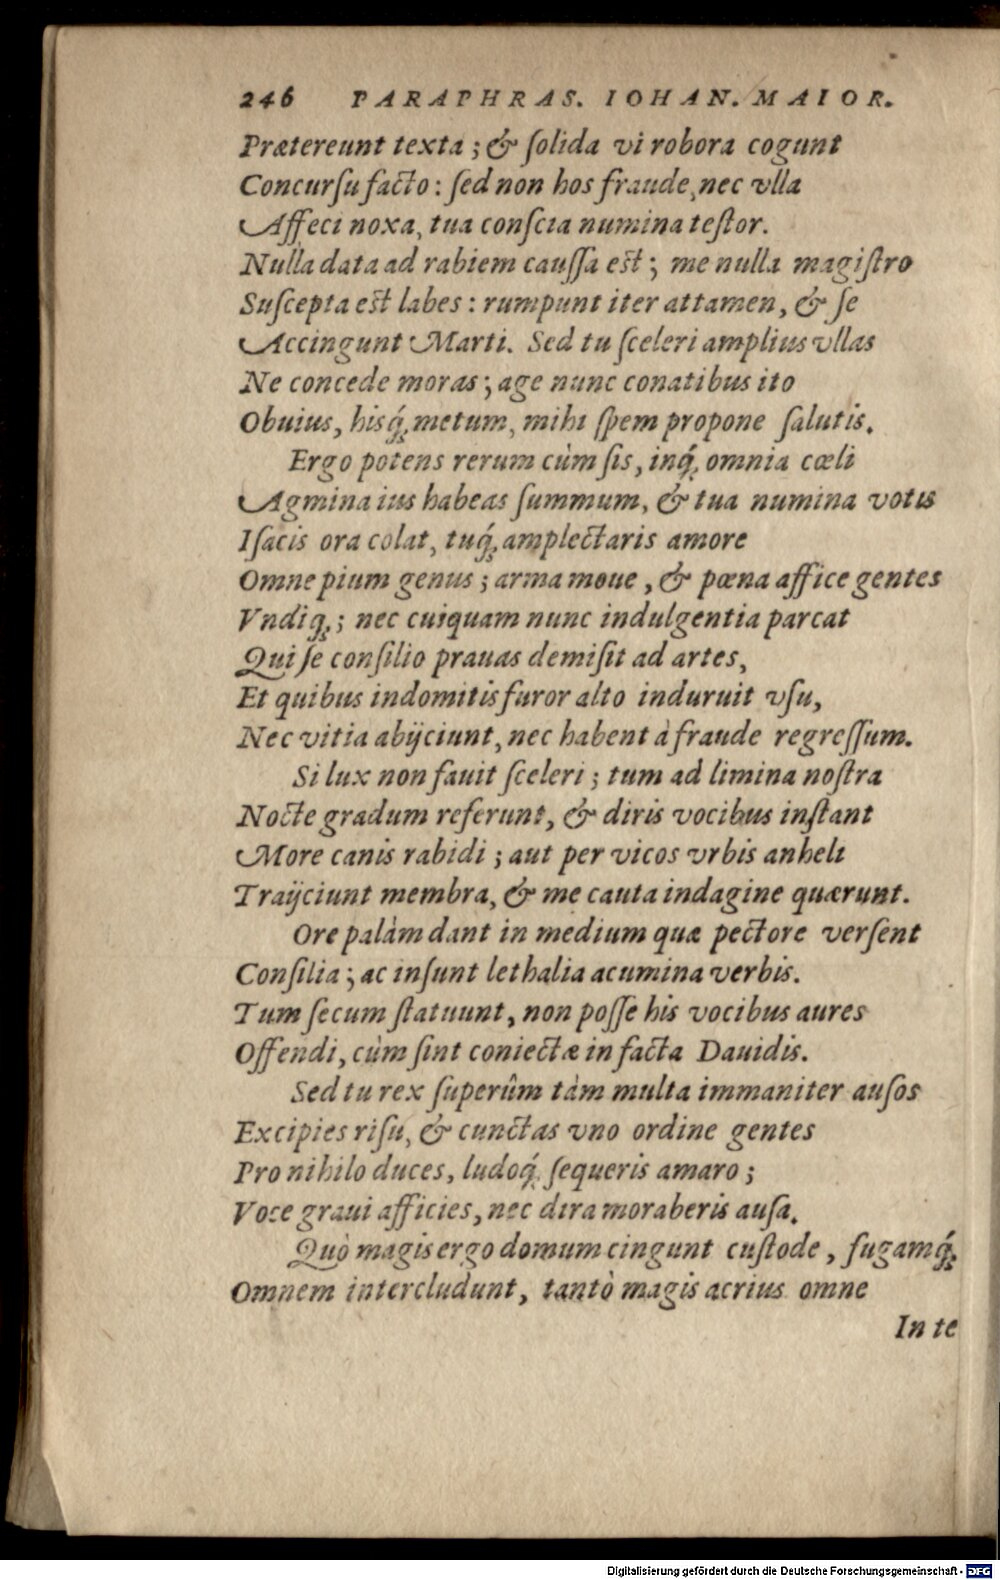 246 PARAPHRAS. IOHAN. MAIOR.
Prætereunt texta; & ſolida vi robora cogunt
Concurſu facto: ſed non hos fraude, nec vlla
Affeci noxa, tua conſcia numina teſtor.
Nulla data ad rabiem cauſſa est; me nulla magiſtro
Suſcepta est labes: rumpunt iter attamen, & ſe
Accingunt Marti. Sed tu ſceleri amplius vllas
Ne concede moras; age nunc conatibus ito
Obuius, hisq́; metum, mihi ſpem propone ſalutis.
Ergo potens rerum cùm ſis, inq́; omnia cœli
Agmina ius habeas ſummum, & tua numina votis
Iſacis ora colat, tuq́; amplectaris amore
Omne pium genus; arma moue, & pœna affice gentes
Vndiq;; nec cuiquam nunc indulgentia parcat
Qui ſe conſilio prauas demiſit ad artes,
Et quibus indomitis furor alto induruit vſu,
Nec vitia abijciunt, nec habent à fraude regreſſum.
Si lux non fauit ſceleri; tum ad limina noſtra
Nocte gradum referunt, & diris vocibus inſtant
More canis rabidi; aut per vicos vrbis anheli
Traijciunt membra, & me cauta indagine quærunt.
Ore palàm dant in medium quæ pectore verſent
Conſilia; ac inſunt lethalia acumina verbis.
Tum ſecum ſtatuunt, non poſſe his vocibus aures
Offendi, cùm ſint coniectæ in facta Dauidis.
Sed tu rex ſuperûm tàm multa immaniter auſos
Excipies riſu, & cunctas vno ordine gentes
Pro nihilo duces, ludoq́; ſequeris amaro;
Voce graui afficies, nec dira moraberis auſa.
Quò magis ergo domum cingunt cuſtode, fugamq́;
Omnem intercludunt, tantò magis acrius omne
In te
Digitalisierung gefördert durch die Deutsche Forschungsgemeinschaft - DFG